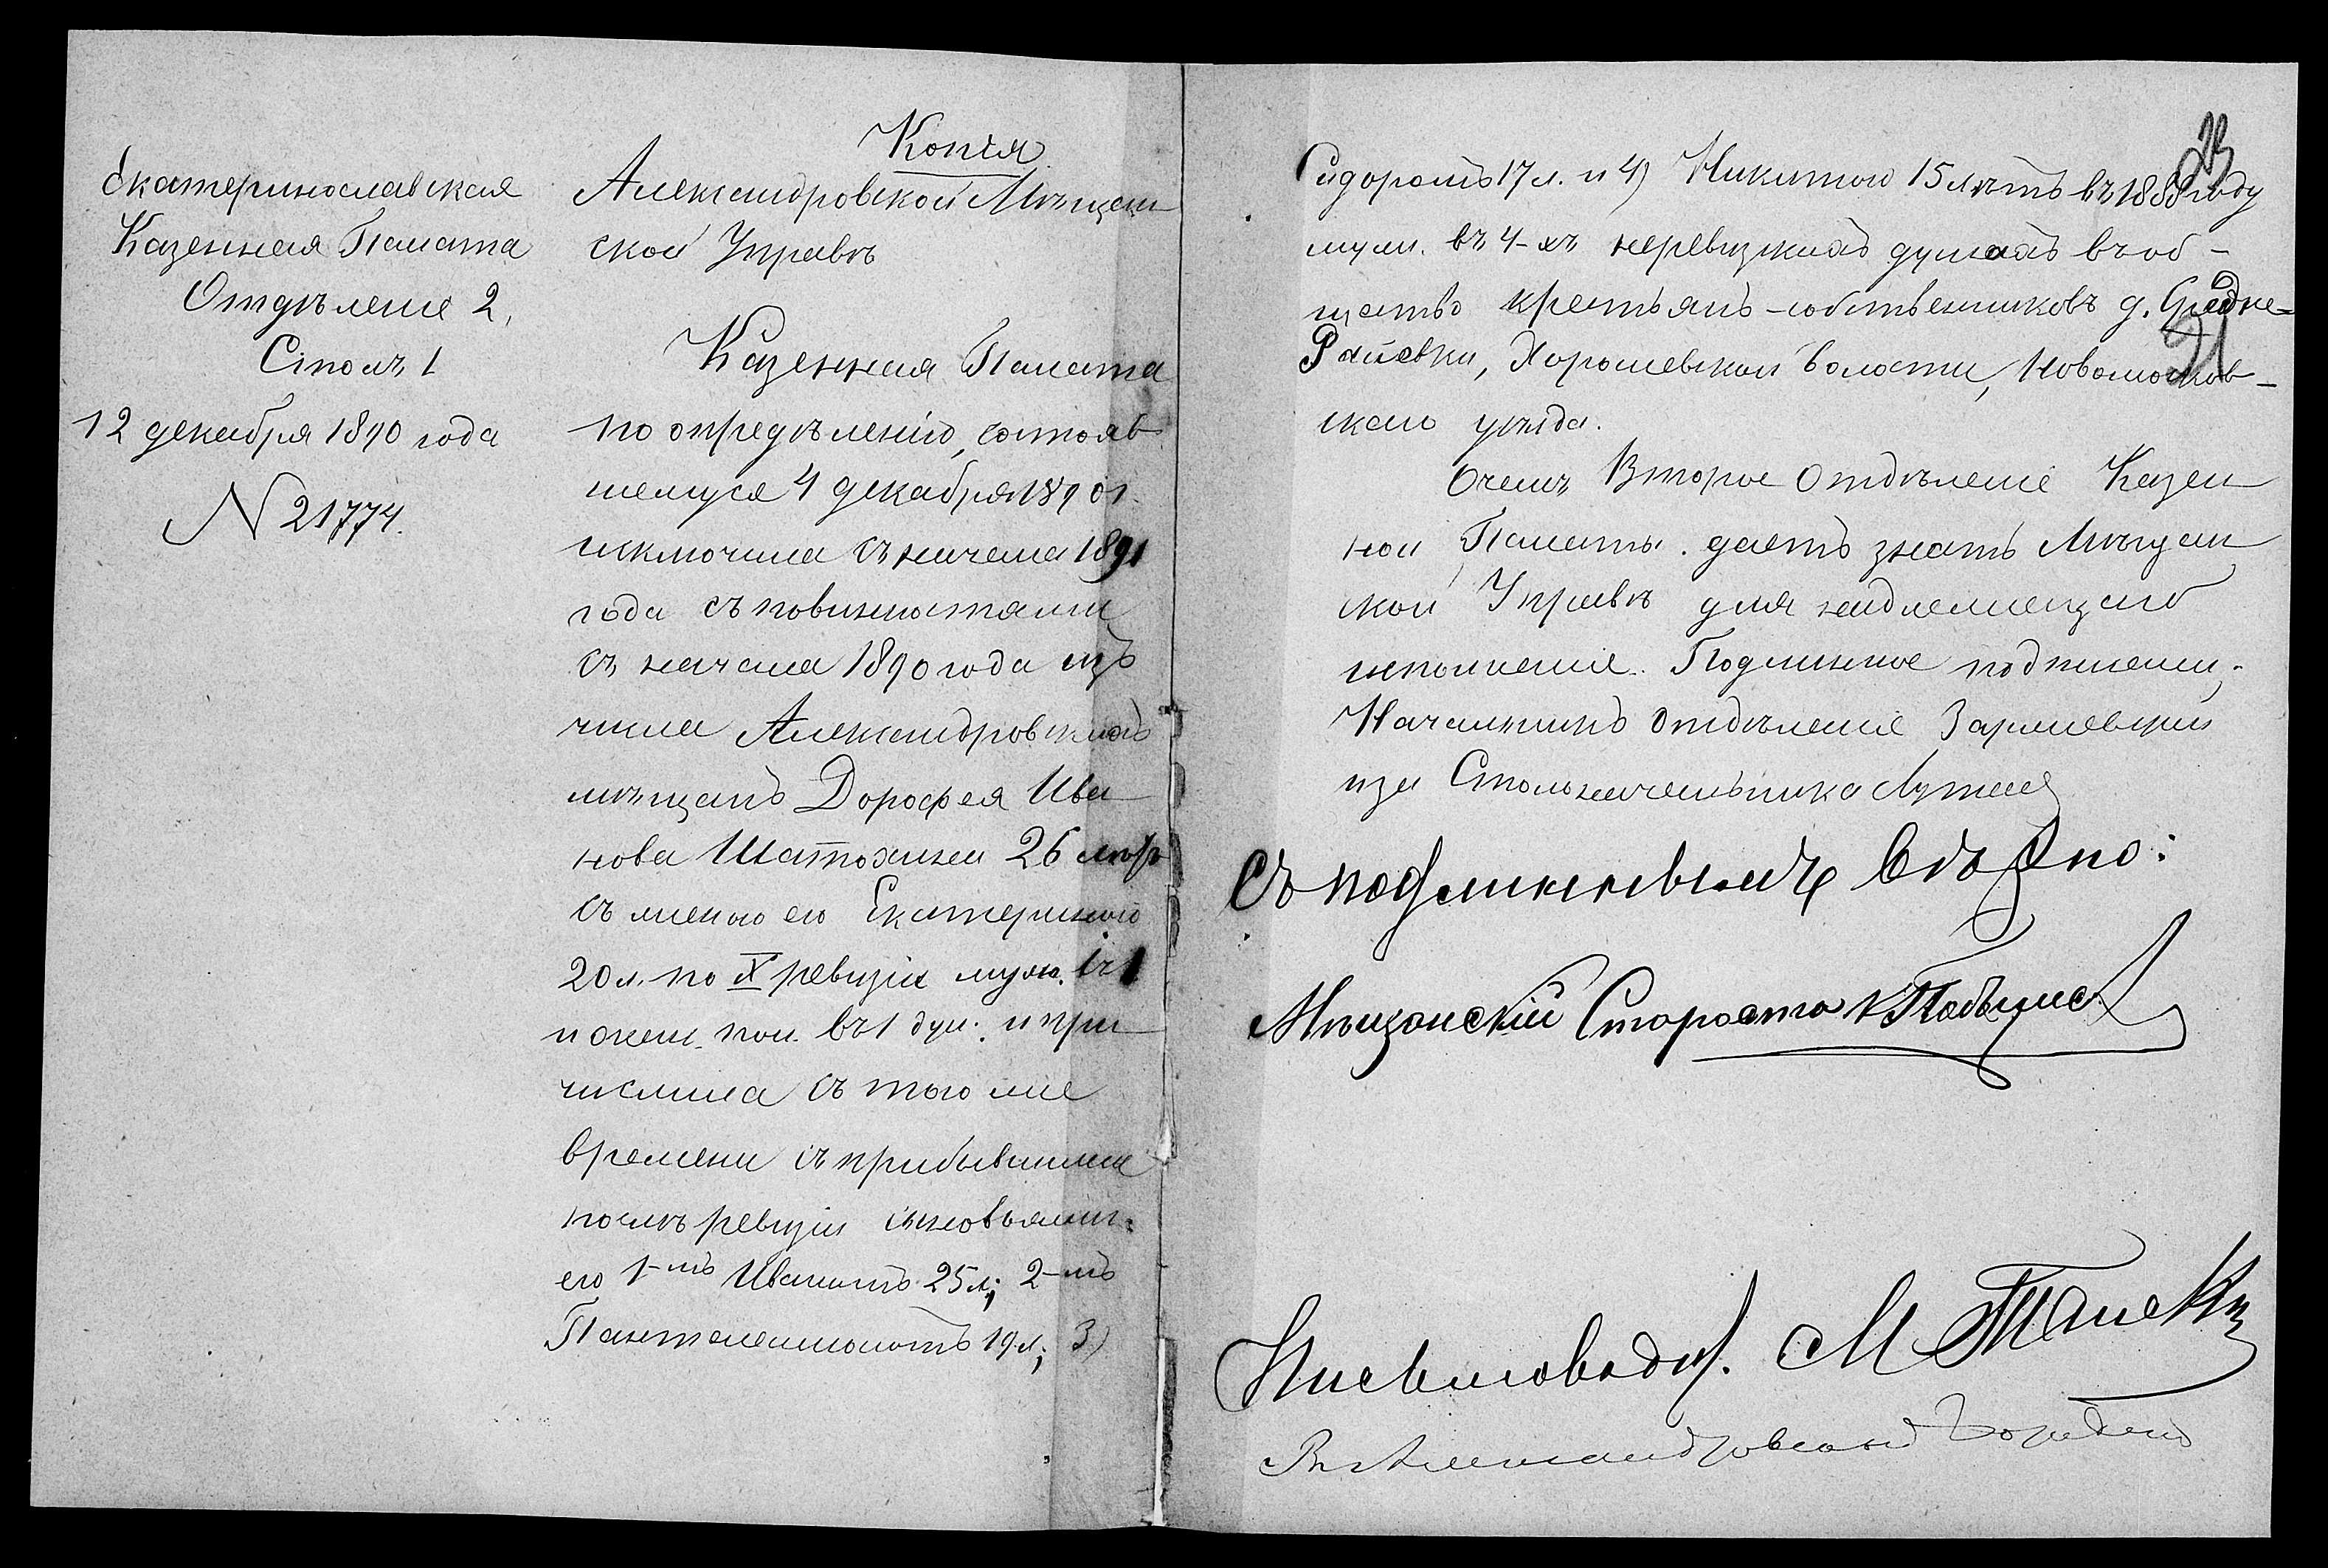 Копія
Екатеринославская
Казенная Палата
Отдѣленіе 2.
Столъ 1
12 декабря 1890 года
N 21774.
Александровской Мѣщан
ской Управѣ
Казенная Палата
по опредѣленію, состояв
шемуся 4 декабря 1890 г.
исключила съ начала 1891
года съ повинностями
съ начала 1890 года изъ
числа Александровскихъ
мѣщанъ Дорофея Ива
нова Шатохина 26 лѣтъ
съ женою его Екатериною
20 л. по X ревизіи муж. въ 1
и жен. пол. въ 1 душ. и при
числила съ того же
времени съ прибывшими
послѣ ревизіи сыновьями
его 1-мъ Иваномъ 25 л; 2-мъ
Пантелеимономъ 19 л; 3)
23
Сидоромъ 17 л. и 4) Никитою 15 лѣтъ въ 1888 году
муж. въ 4-хъ неревизкихъ душахъ въ об-
щество крестьянъ-собственниковъ д. Средне-
21
Раевки, Хорошевской волости, Новомосков-
скаго уѣзда.
О чемъ Второе Отдѣленіе Казен
ной Палаты даетъ знать Мѣщан
ской Управѣ для надлежащаго
исполненія. Подлинное подписали:
Начальникъ Отдѣленія
и за Столоначальника
Съ подлиннымъ вѣрно:
Мѣщанскій Староста
Письмоводит. М
В Александровскъ